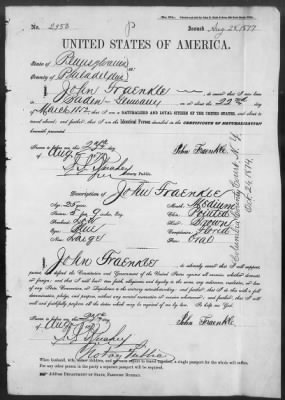 No. 2958
Issued Aug 24, 1877
UNITED STATES OF AMERICA.
State of Pennsylvania
County of Philadelphia
I, John Fraenkle do swear that I was born
in Baden-Germany on the 22nd day
of March 1852; that I am a NATURALIZED AND LOYAL CITIZEN OF THE UNITED STATES, and about to
travel abroad; and further, that I am the Identical Person described in the CERTIFICATE OF NATURALIZATION
herewith presented.
Sworn to before me this 23rd day
of Aug
John Fraenkle
Notary Public.
Description of John Fraenkle
Age: 25 years
Mouth: Medium
Stature: 5 feet 9 inches, Eng.
Chin: Pointed
Hair: Brown
Eyes: Blue
Complexion: Florid
Nose: Large
Face: Oval
I, John Fraenkle do solemnly swear that I will support,
protect, and defend the Constitution and Government of the United States against all enemies, whether domestic
or foreign; and that I will bear true faith, allegiance, and loyalty to the same, any ordinance, resolution, or law
of any State, Convention, or Legislature to the contrary notwithstanding; and further, that I do this with a full
determination, pledge, and purpose, without any mental reservation or evasion whatsoever; and further, that I will
well and faithfully perform all the duties which may be required of me by law. So help me God.
Sworn to before me this 23rd day
of Aug
John Fraenkle
Notary Public
When husband, wife, minor children, and servants expect to travel together, a single passport for the whole will suffice.
For any other person in the party a separate passport will be required.
Address DEPARTMENT OF STATE, PASSPORT BUREAU.